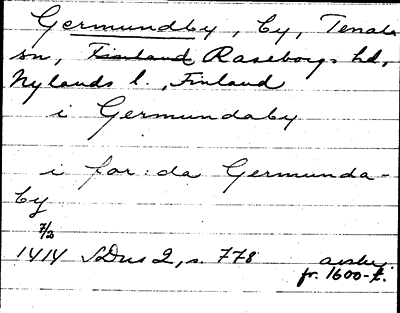 Germundby, by, Tenala
sn, Finland Raseborgs hd,
Nylands l., Finland
i Germundaby
i for:da Germunda-
by
7/2
1414 SDns 2, s. 778
avskr.
fr. 1600-t.